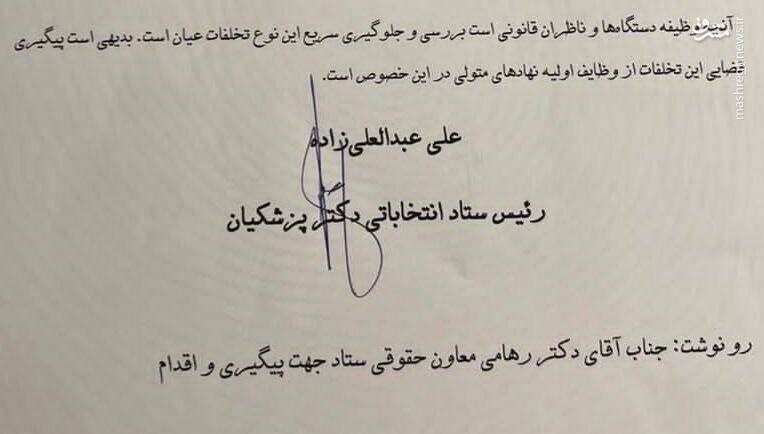 آنچه وظیفه دستگاه‌ها و ناظران قانونی است بررسی و جلوگیری سریع این نوع تخلفات عیان است. بدیهی است پیگیری
قضایی این تخلفات از وظایف اولیه نهادهای متولی در این خصوص است.
علی عبدالعلی‌زاده
رئیس ستاد انتخاباتی دکتر پزشکیان
رو نوشت: جناب آقای دکتر رهامی معاون حقوقی ستاد جهت پیگیری و اقدام
mashreghnews.ir